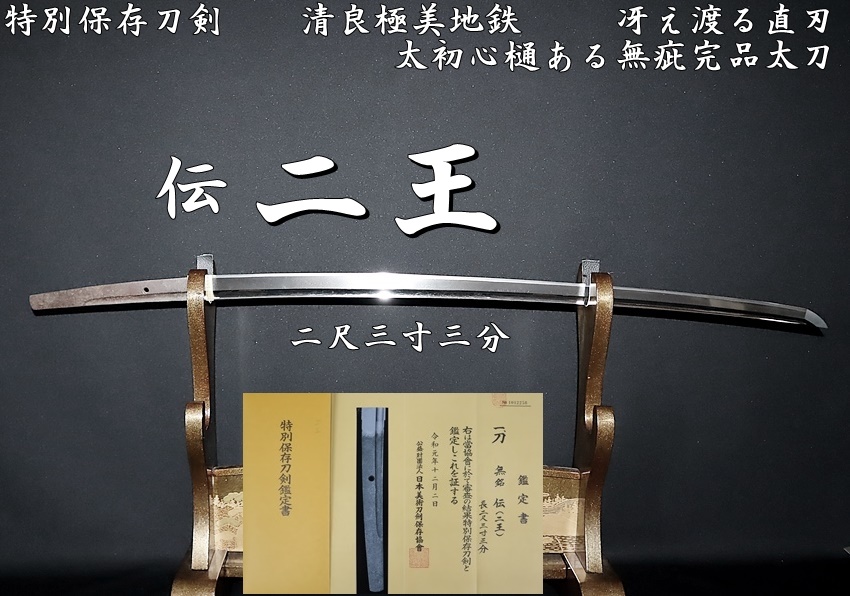 特別保存刀剣　清良極美地鉄　冴え渡る直刃
太初心樋ある無疵完品太刀
伝 二王
二尺三寸三分
特別保存刀剣鑑定書
鑑定書
一刀　無銘　伝(二王)
長二尺三寸三分
右は當協會に於て審査の結果特別保存刀剣と
鑑定しこれを証する
令和元年十二月二日
公益財團法人 日本美術刀剣保存協會